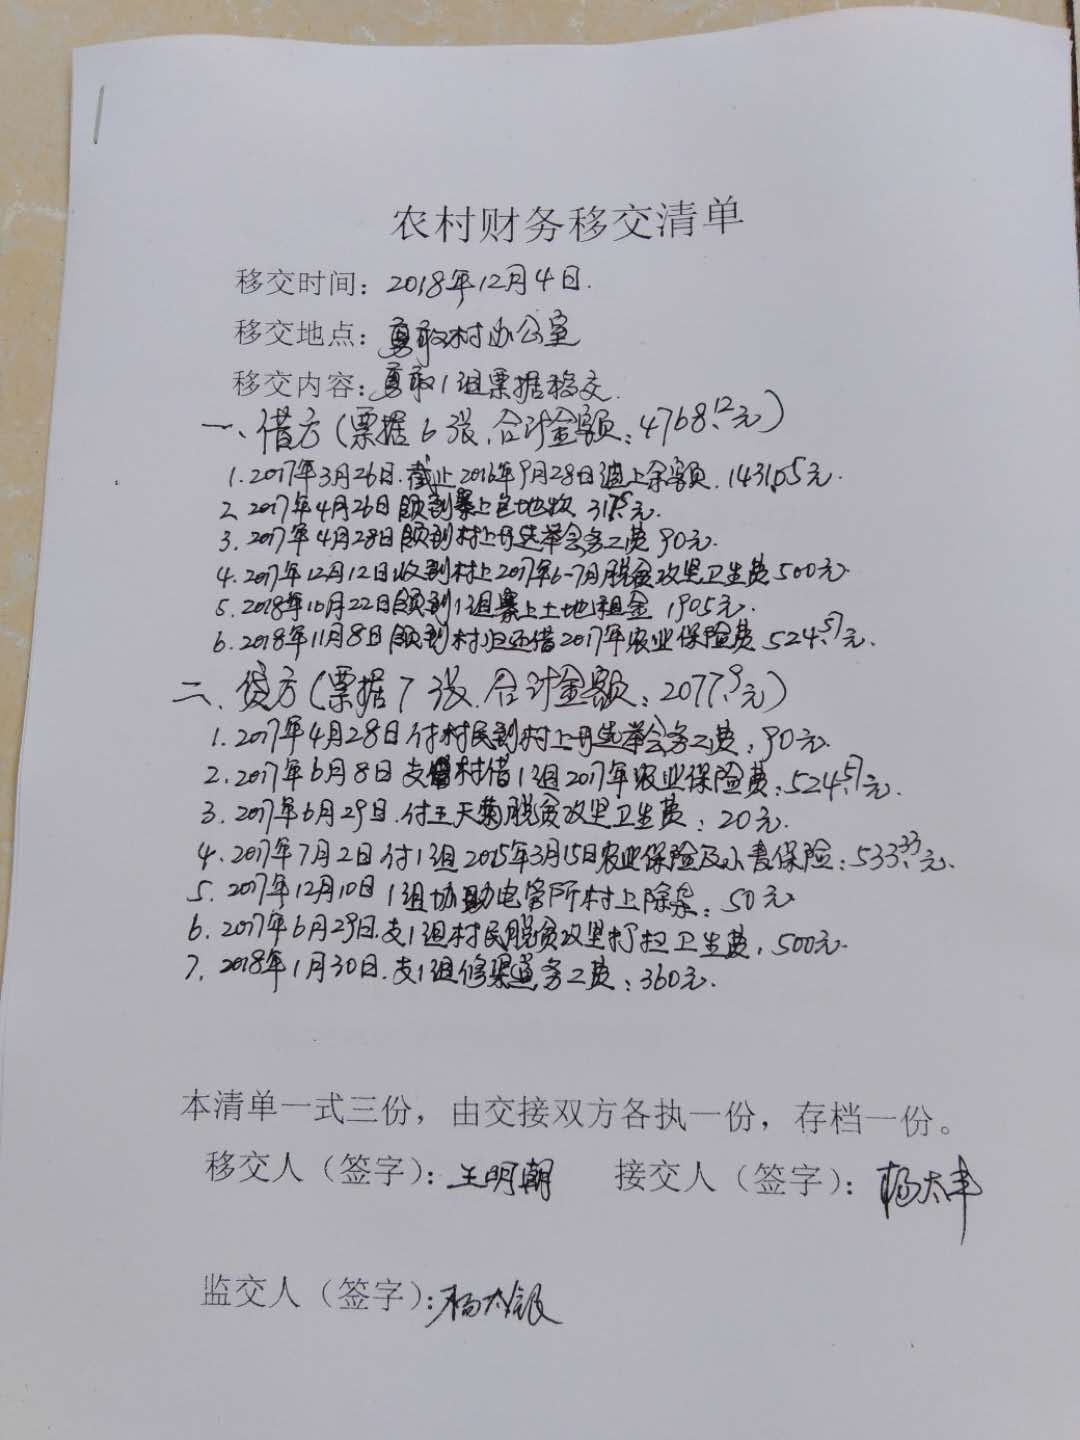 农村财务移交清单
移交时间：2018年12月4日.
移交地点：勇敢村办公室
移交内容：勇敢1组票据移交.
一、借方（票据6张.合计金额：4768.12元）
1.2017年3月26日.截止2016年9月28日 上余额.1431.05元.
2.2017年4月26日领到 上包地款 317.5元.
3.2017年4月28日领到村上 选举会务工费90元.
4.2017年12月12日收到村上2017年6-7月脱贫攻坚卫生费500元
5.2018年10月22日领到1组 上土地租金 1905元.
6.2018年11月8日领到村归还借2017年农业保险费524.57元.
二、贷方（票据7张.合计金额：2077.9元）
1.2017年4月28日付村民到村上 选举会务工费：90元.
2.2017年6月8日支 村借1组2017年农业保险费：524.57元.
3.2017年6月29日.付王天菊脱贫攻坚卫生费：20元.
4.2017年7月2日付1组2015年3月15日农业保险及小麦保险：533.33元.
5.2017年12月10日1组协助电管所村上除杂：50元
6.2017年6月29日.支1组村民脱贫攻坚打扫卫生费：500元.
7.2018年1月30日.支1组修渠道务工费：360元.
本清单一式三份，由交接双方各执一份，存档一份。
移交人（签字）：王明朝 接交人（签字）：杨太丰
监交人（签字）：杨太银